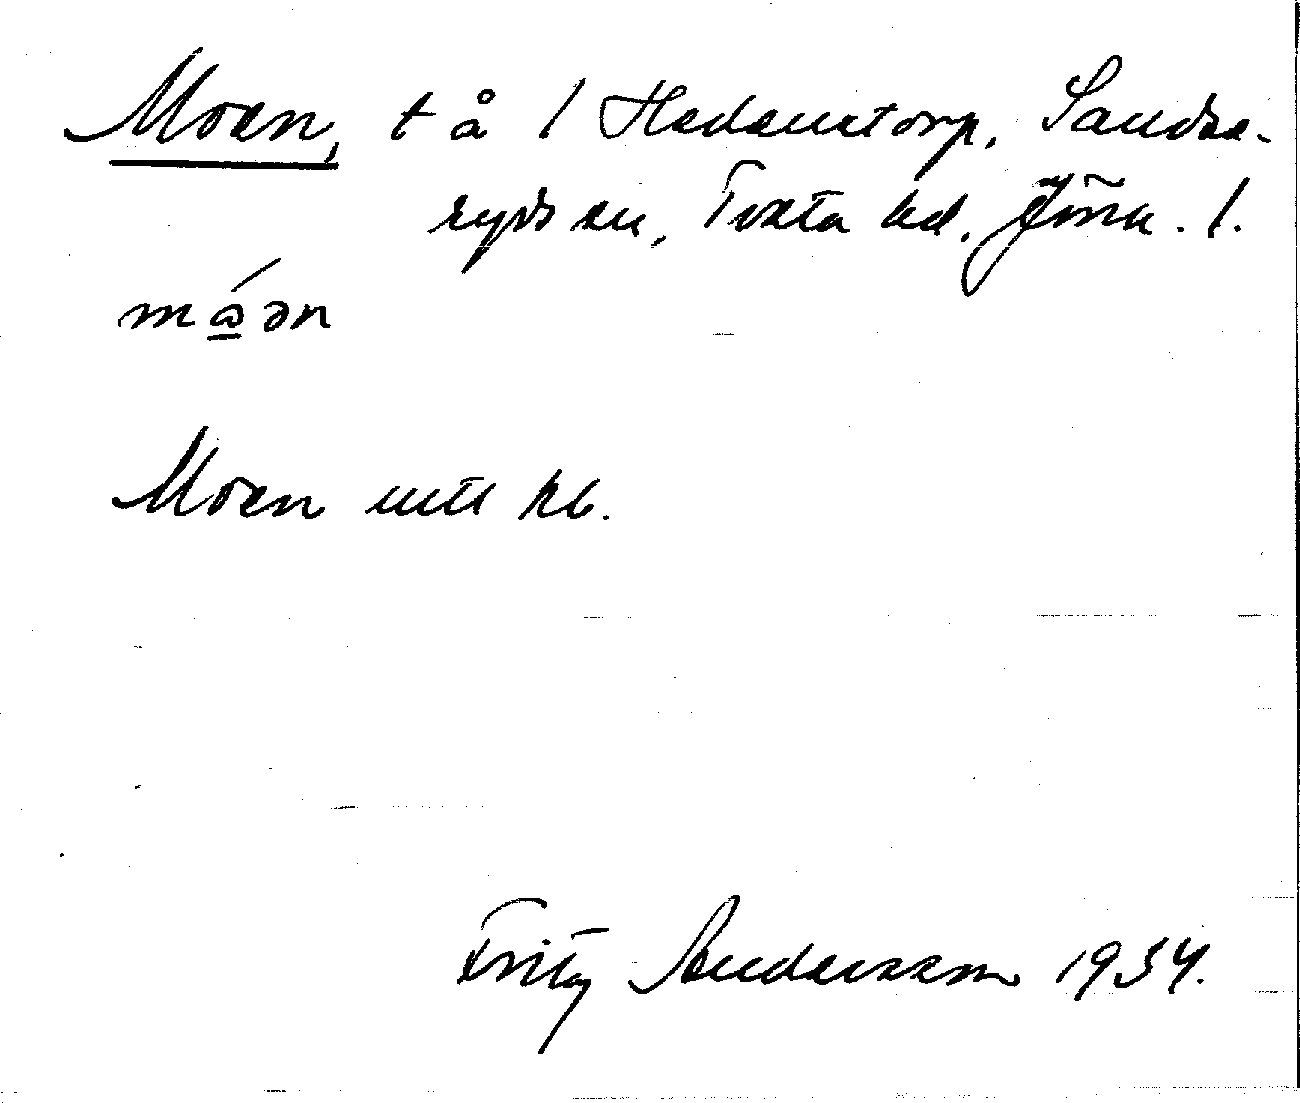 Moen, t å 1 Hedenstorp, Sandse-
ryds sn, Tveta hd. Jönk. l.
mɷ́ən
Moen uttl kb.
Fritz Andersson 1934.